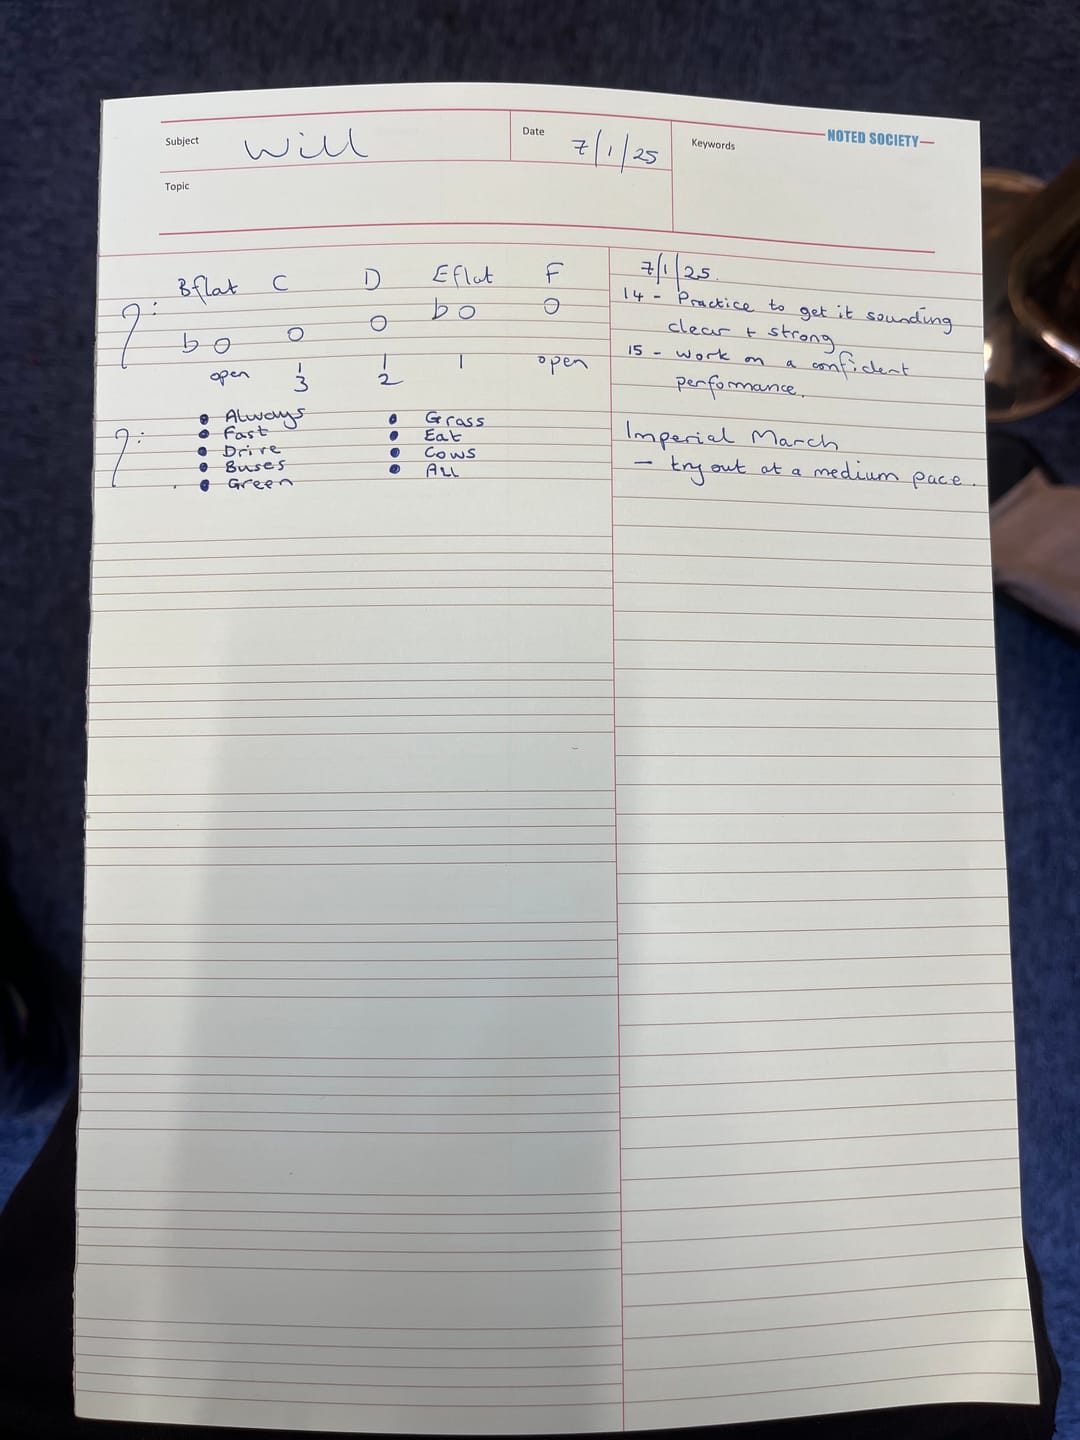 NOTED SOCIETY
Subject Will
Date 7/1/25
Keywords
Topic
Bflat C D Eflat F
b
b
open 1 3 1 2 1 open
Always
Fast
Drive
Buses
Green
Grass
Eat
Cows
ALL
7/1/25.
14 - Practice to get it sounding
clear + strong
15 - work on a confident
performance.
Imperial March
- try out at a medium pace.